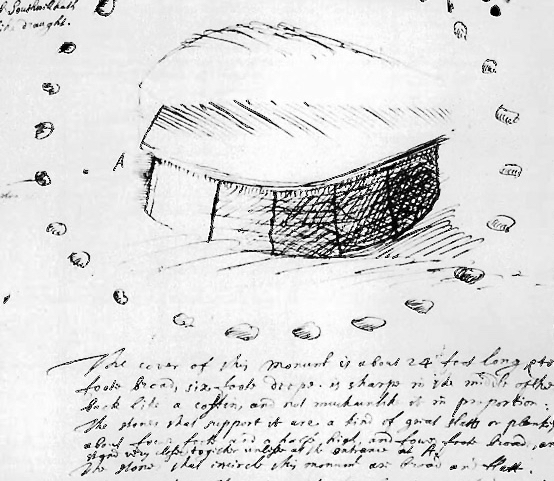 draught.
A
The cover of this Monumt is about 24 foot long & to
foote broad, six foote deepe. is sharpe in the middle of the
back like a coffin, and not much unlike it in proportion.
The stones that support it are a kind of great slatts or planks
about four foot and a halfe high, and fower foote broad, an
stand very close together unless at the entrance at A.
The stones that incircle this monumt are broad and flatt.